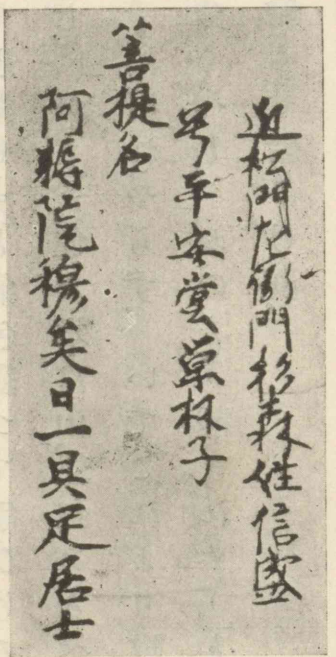 近松門左衛門杉森姓信盛
号平安堂巣林子
菩提名
阿耨院穆矣日一具足居士